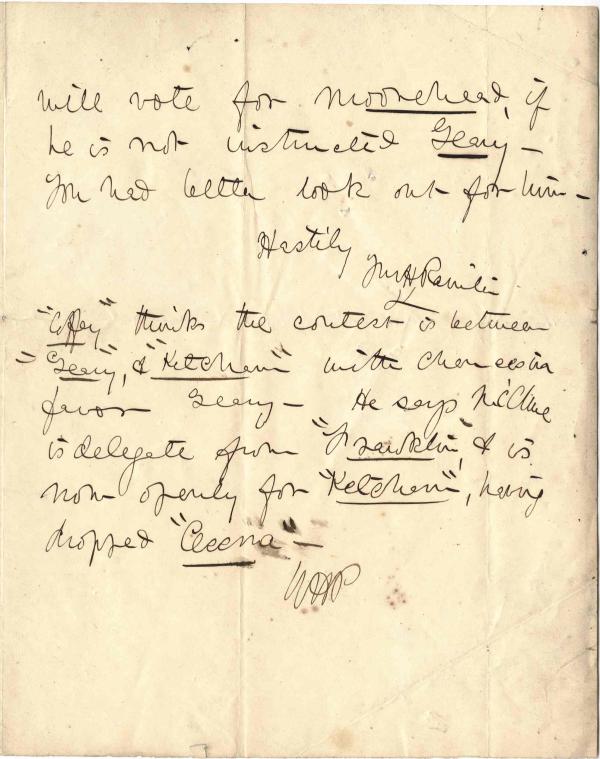 will vote for Moorehead, if
he is not instructed Geary —
You had better look out for him —
Hastily
Wm H
"Coffey" thinks the contest is between
"Geary", & "Ketcham" with chances in
favor Geary — He says McClure
is delegate from "Franklin", & is
now openly for "Ketcham", having
dropped "Cessna" —
WHR